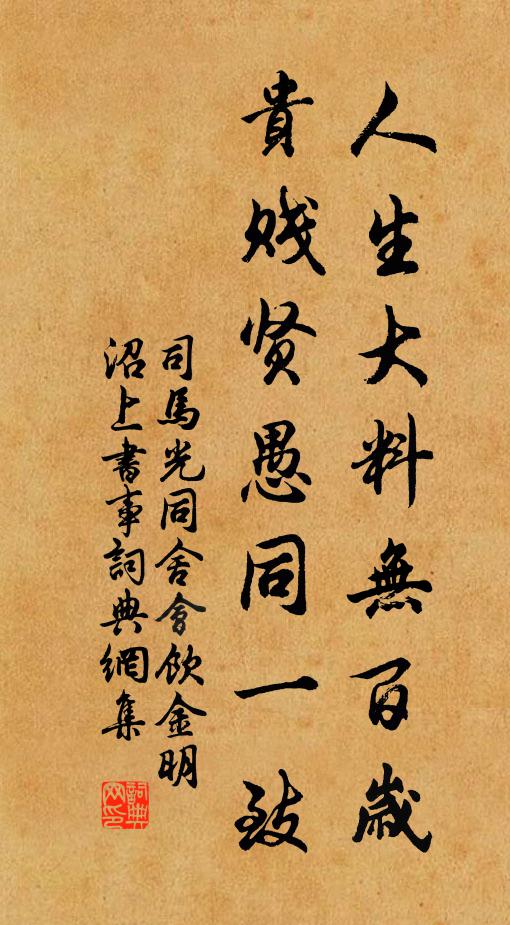 人生大料無百歲
貴賤贤愚同一致
司馬光同舍會飲金明
沼上書事詞典網集
詞典网印